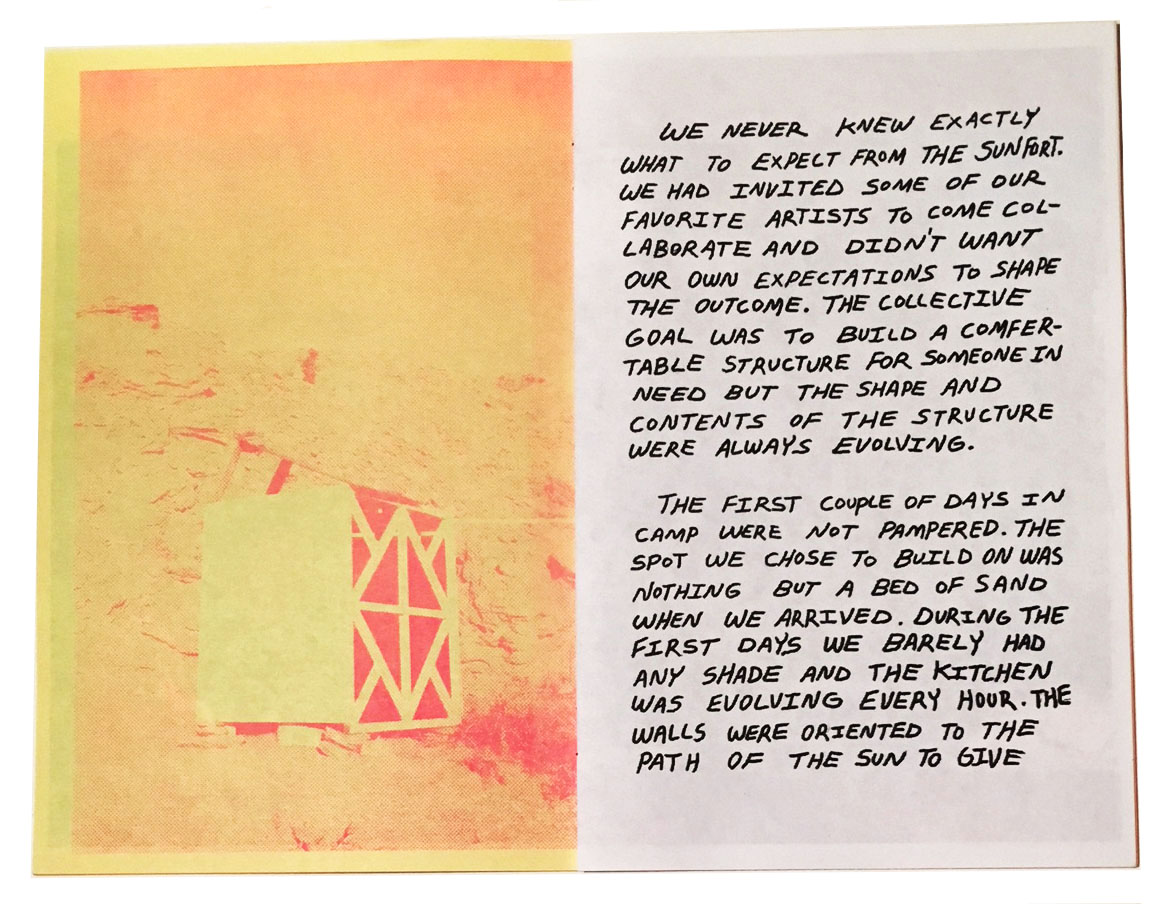 WE NEVER KNEW EXACTLY
WHAT TO EXPECT FROM THE SUNFORT.
WE HAD INVITED SOME OF OUR
FAVORITE ARTISTS TO COME COL-
LABORATE AND DIDN'T WANT
OUR OWN EXPECTATIONS TO SHAPE
THE OUTCOME. THE COLLECTIVE
GOAL WAS TO BUILD A COMFER-
TABLE STRUCTURE FOR SOMEONE IN
NEED BUT THE SHAPE AND
CONTENTS OF THE STRUCTURE
WERE ALWAYS EVOLVING.
THE FIRST COUPLE OF DAYS IN
CAMP WERE NOT PAMPERED. THE
SPOT WE CHOSE TO BUILD ON WAS
NOTHING BUT A BED OF SAND
WHEN WE ARRIVED. DURING THE
FIRST DAYS WE BARELY HAD
ANY SHADE AND THE KITCHEN
WAS EVOLVING EVERY HOUR. THE
WALLS WERE ORIENTED TO THE
PATH OF THE SUN TO GIVE